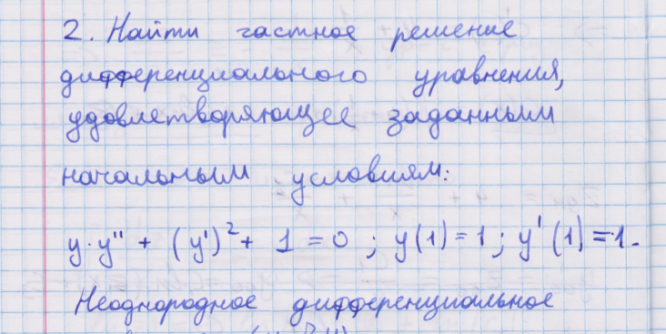 2. Найти частное решение
дифференциального уравнения,
удовлетворяющее заданным
начальным условиям:
y·y'' + (y')² + 1 = 0 ; y(1) = 1 ; y'(1) = 1.
Неоднородное дифференциальное